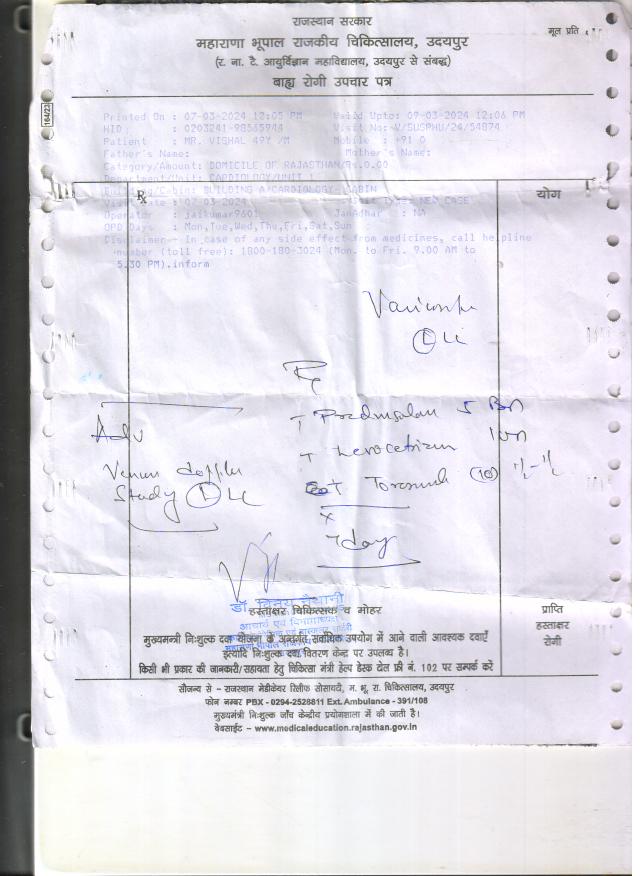 राजस्थान सरकार
मूल प्रति
महाराणा भूपाल राजकीय चिकित्सालय, उदयपुर
(र. ना. टै. आयुर्विज्ञान महाविद्यालय, उदयपुर से संबद्ध)
बाह्य रोगी उपचार पत्र
164/23
Printed On : 07-03-2024 12:05 PM Valid Upto: 09-03-2024 12:06 PM
HID : 0203241-98565944 Visit No: V/SUSPHU/24/54874
Patient : MR. VISHAL 49Y /M Mobile : +91 0
Father's Name: Mother's Name:
Category/Amount: DOMICILE OF RAJASTHAN/Rs.0.00
Department/Unit: CARDIOLOGY/UNIT 1
BUILDING A CARDIOLOGY CABIN
Rx योग
07-03-2024 NEW CASE
Operator : jaikumar9601 JanAdhar : NA
OPD Days : Mon,Tue,Wed,Thu,Fri,Sat,Sun
Disclaimer:- In case of any side effect from medicines, call helpline
number (toll free): 1800-180-3024 (Mon. to Fri. 9.00 AM to
5.30 PM).inform
(L) LL
Rx
T 5 BD
Adv
T Levocetrizin
Venous doppler
Study (L) LL
T (10) 1/2-1/2
x
7 day
हस्ताक्षर चिकित्सक व मोहर
प्राप्ति
हस्ताक्षर
रोगी
मुख्यमन्त्री निःशुल्क दवा योजना के अन्तर्गत सर्वाधिक उपयोग में आने वाली आवश्यक दवाएँ
इत्यादि निःशुल्क दवा वितरण केन्द्र पर उपलब्ध है।
किसी भी प्रकार की जानकारी/सहायता हेतु चिकित्सा मंत्री हेल्प डेस्क टोल फ्री नं. 102 पर सम्पर्क करें
सौजन्य से - राजस्थान मेडीकेयर रिलीफ सोसायटी, म. भू. रा. चिकित्सालय, उदयपुर
फोन नम्बर PBX - 0294-2528811 Ext. Ambulance - 391/108
मुख्यमंत्री निःशुल्क जाँच केन्द्रीय प्रयोगशाला में की जाती है।
वेबसाईट - www.medicaleducation.rajasthan.gov.in